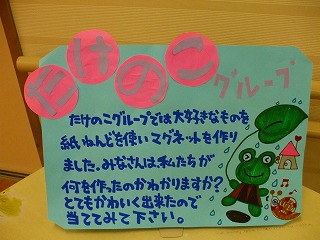 たけのこグループ
たけのこグループでは大好きなものを
紙ねんどを使いマグネットを作り
ました。みなさんは私たちが
何を作ったのかわかりますか?
とてもかわいく出来たので
当ててみて下さい。